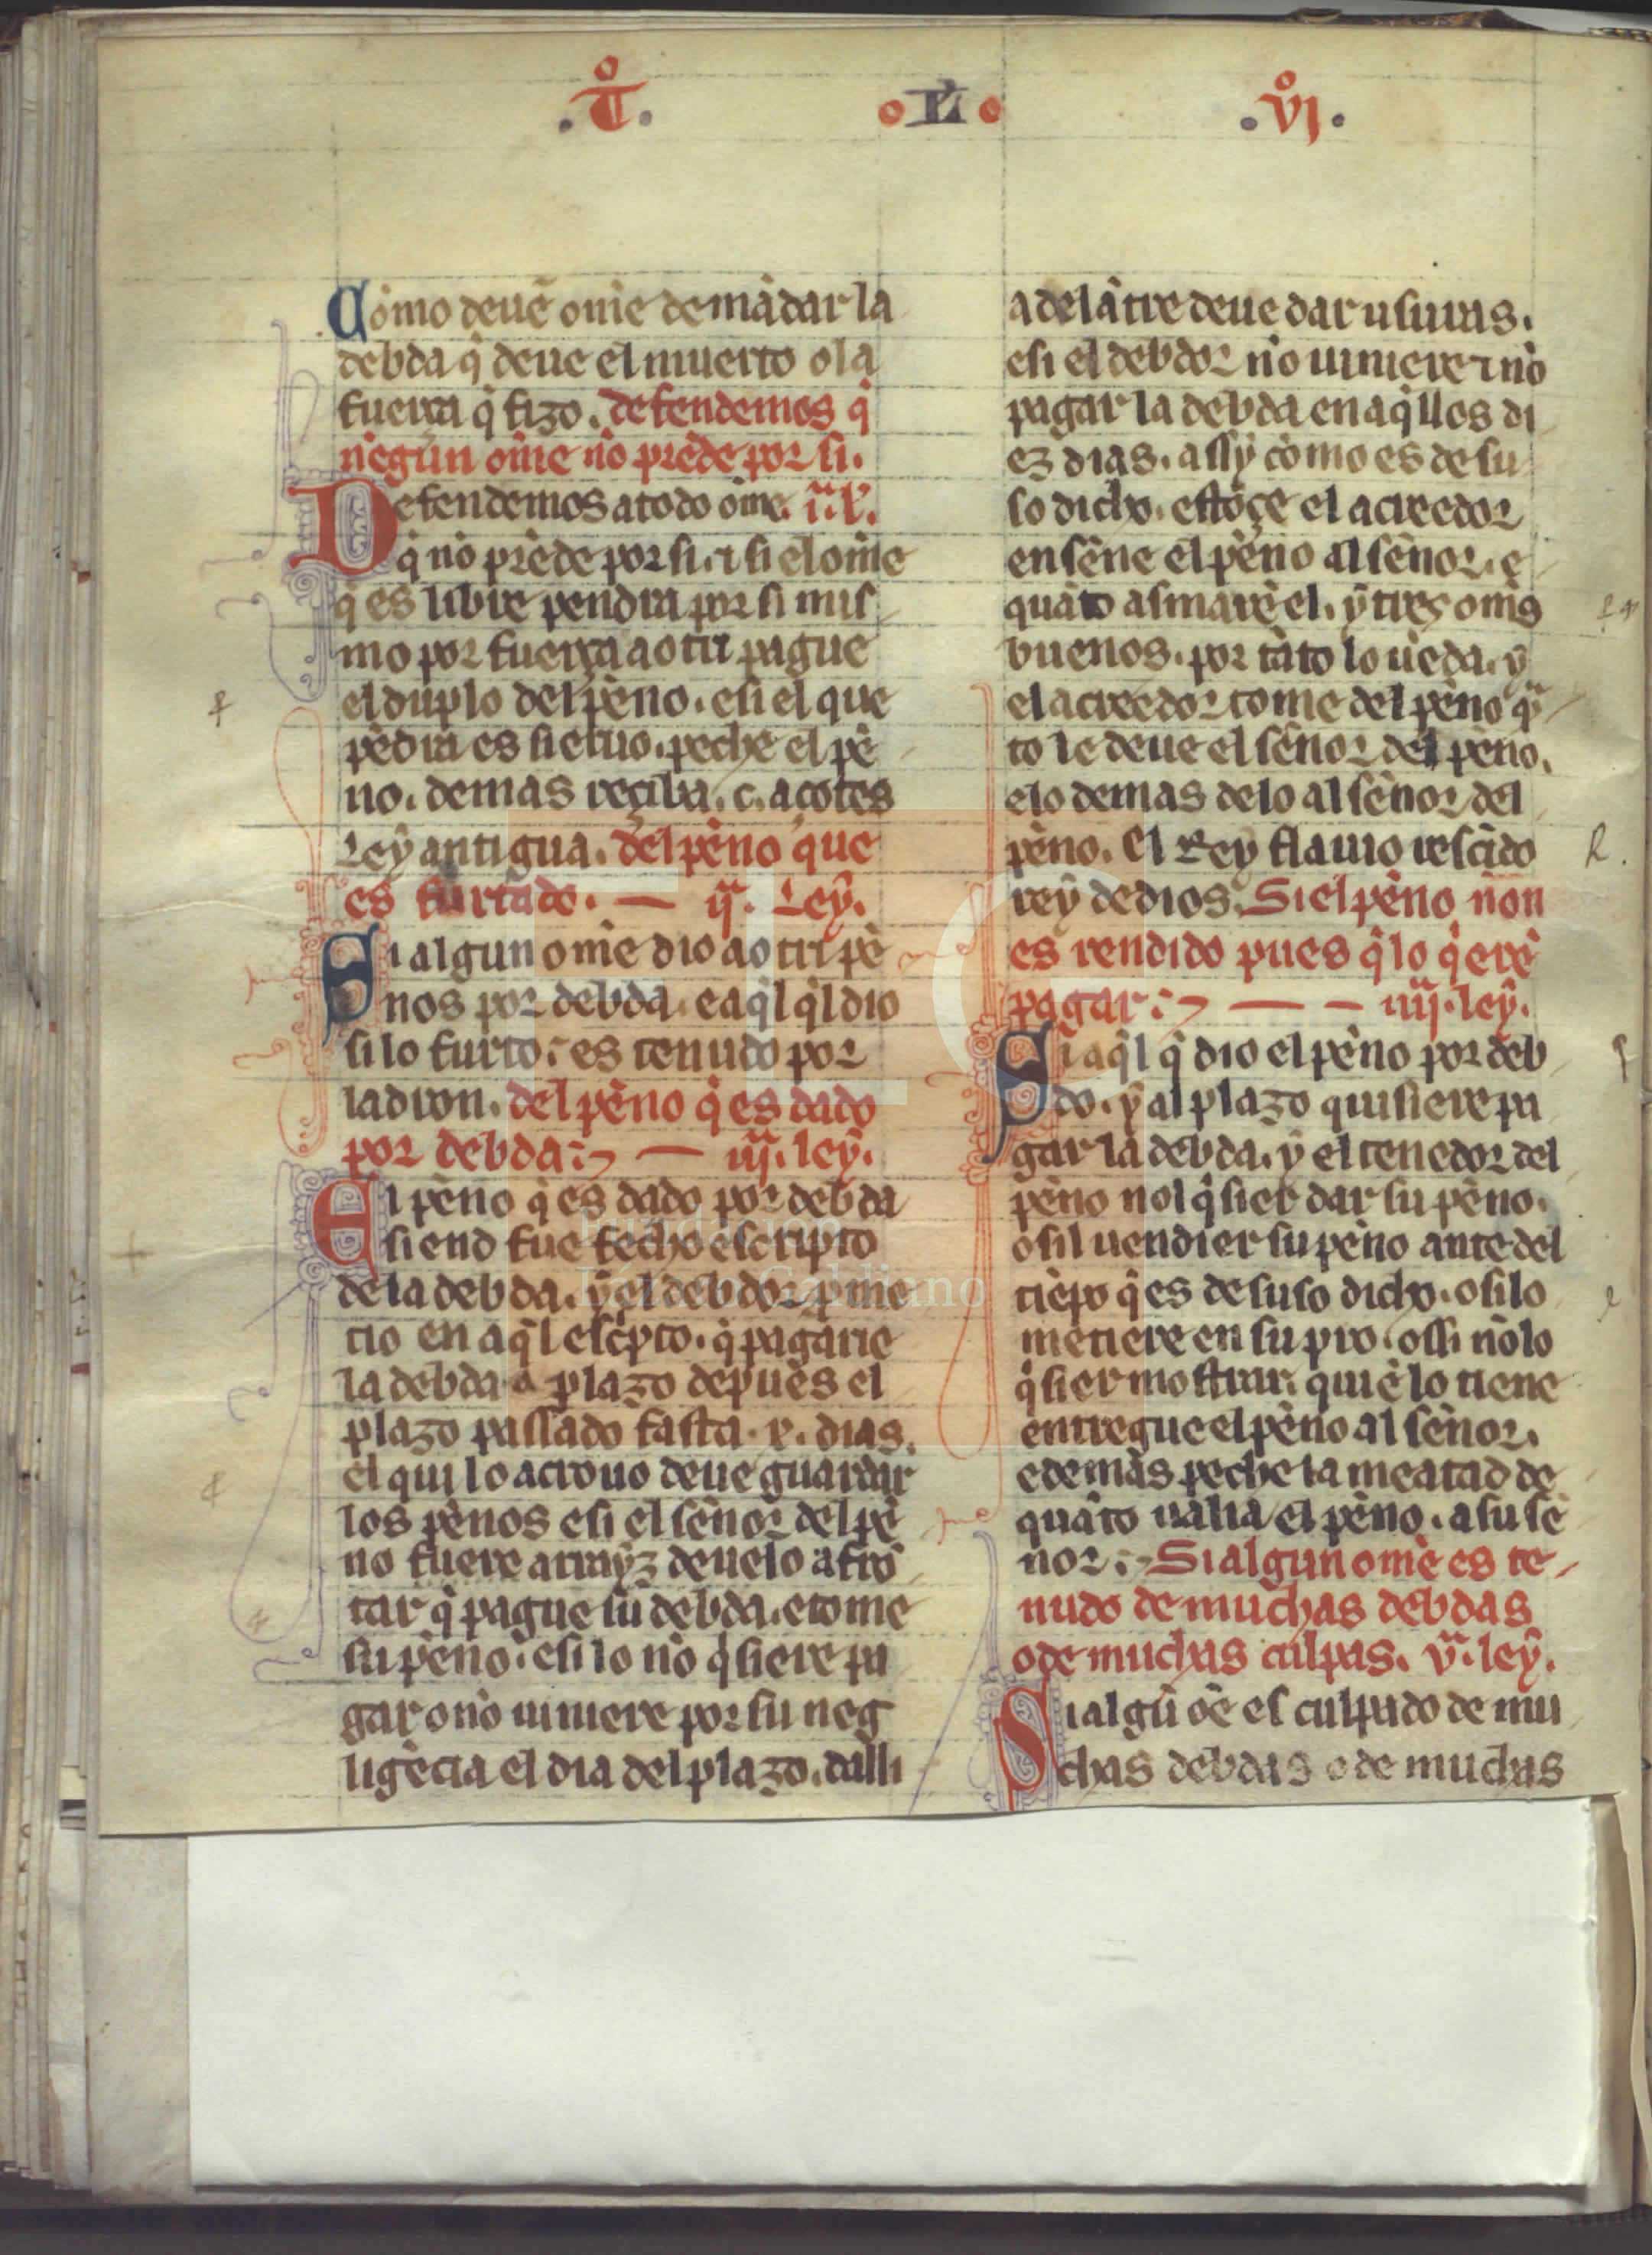 .T̊. .L̃. .v̊j.
Como deuẽ om̃e demãdar la
debda q̃ deue el muerto o la
fuerça q̃ fizo. defendemos q̃
nẽgun om̃e nõ prẽde por si.
Defendemos a todo om̃e. i.ª l.
q̃ nõ prẽde por si. ⁊ si el om̃e
q̃ es libre pendra por si mis
mo por fuerça a otri pague
el duplo del pẽno. e si el que
pẽdra es sieruo. peche el pẽ
no. demas reçiba. c. açotes
Ley antigua. del pẽno que
es furtado. — ij.ª Leẏ.
Si algun om̃e dio a otri pẽ
nos por debda. e aq̃l q̃l dio
si lo furto: es tenudo por
ladron. del pẽno q̃ es dado
por debda: — iij.ª leẏ.
El pẽno q̃ es dado por debda
siend fue fecho escripto
de la debda. ẏ el debdor p̃me
tio en aq̃l esc̃pto. q̃ pagarie
la debda a plazo depues el
plazo passado fasta. x. dias.
el qui lo acrouo deue guardar
los pẽnos e si el señor del pẽ
no fuere a rrayz deuelo afrõ
tar q̃ pague su debda. e tome
su pẽno. e si lo nõ q̃siere pa
gar o nõ uiniere por su neg
ligẽcia el dia del plazo. dalli
adelãtre deue dar usuras.
e si el debdor nõ uiniere ⁊ nõ
pagar la debda en aq̃llos di
ez dias. assẏ como es de su
so dicho. estõçe el acreedor
enseñe el pẽno al señor. e
quãto asmarẽ el. ẏ tres om̃s
buenos. por tãto lo uẽda. ẏ
el acreedor tome del pẽno qª̃
to le deue el señor del pẽno.
e lo demas delo al señor del
pẽno. El Rey flauio rescĩdo
reẏ de dios. Si el pẽno non
es rendido pues q̃ lo q̃erẽ
pagar: — — iiij.ª leẏ.
Si aq̃l q̃ dio el pẽno por deb
do. ẏ al plazo quisiere pa
gar la debda. ẏ el tenedor del
pẽno nol q̃sier dar su pẽno.
o sil uendier su pẽno ante del
tiẽpo q̃ es de suso dicho. o si lo
metiere en su pro. o si nõ lo
q̃sier mostrar. quiẽ lo tiene
entregue el pẽno al señor.
e demas peche la meatad de
quãto ualia el pẽno. a su se
ñor: Si algun om̃e es te-
nudo de muchas debdas
o de muchas culpas. v.ª leẏ.
Si algũ oẽ es culpado de mu
chas debdas o de muchas